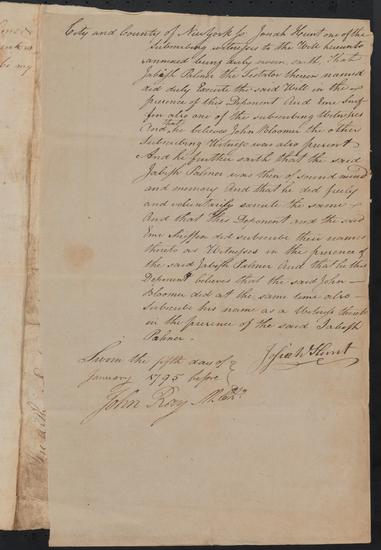 City and County of New York ss. Josiah Hunt one of the
Subscribing witnesses to the Will hereunto
annexed being duly sworn, saith, That
Jabish Palmer the Testator therein named
did duly Execute the said Will in the
presence of this Deponent And
also one of the subscribing Witnesses
And that he believes John Bloomer the other
Subscribing Witness was also present
And he further saith that the said
Jabish Palmer was then of sound mind
and memory And that he did freely
and voluntarily execute the same
And that this Deponent and the said
did subscribe their names
thereto as Witnesses in the presence of
the said Jabish Palmer And that he this
Deponent believes that the said John
Bloomer did at the same time also
Subscribe his name as a Witness thereto
in the presence of the said Jabish
Palmer.
Sworn the fifth day of
January 1795 before
Josiah Hunt
John Ray